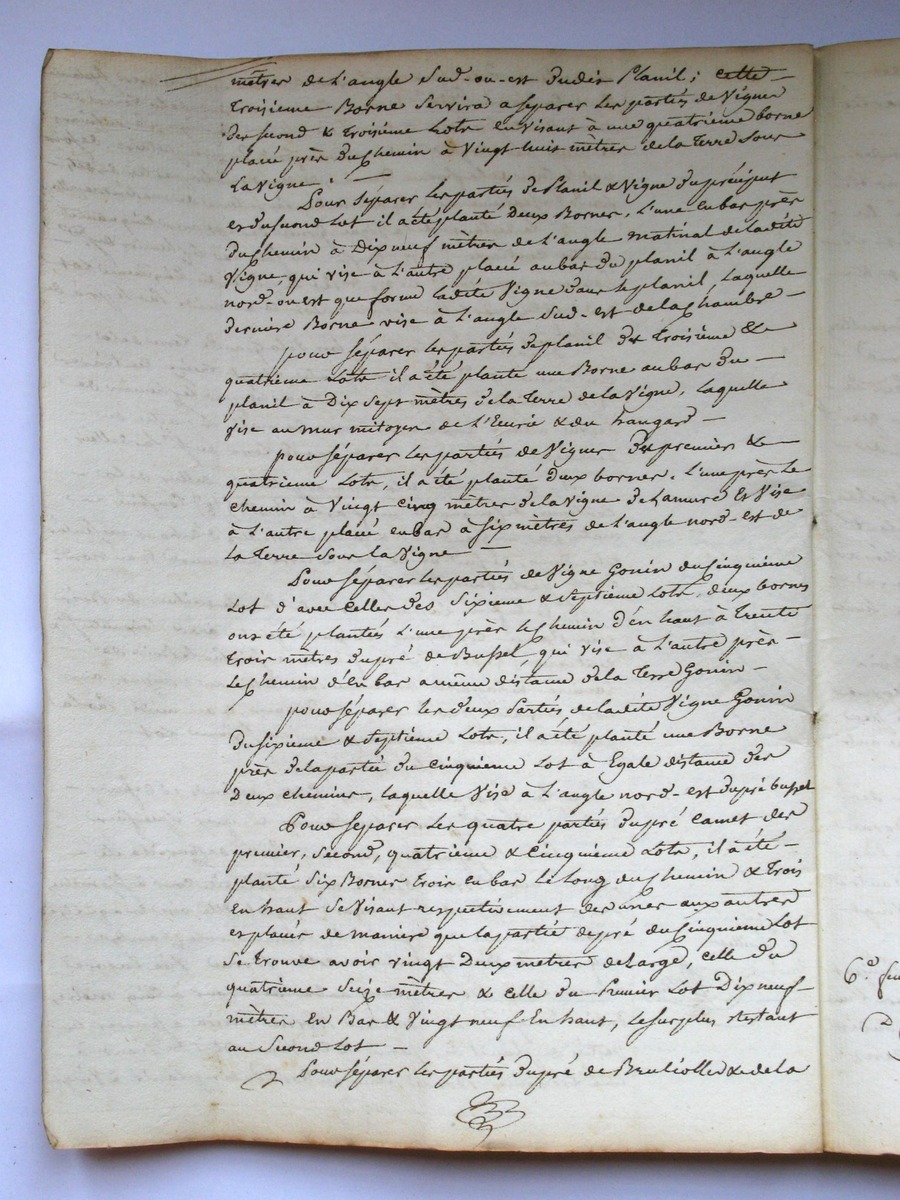 mètres de l'angle Sud-ou-est dudit Planil; cette
troisieme Borne servira a séparer les partiés de Vignes
des second & troisiéme Lots en Visant à une quatrieme borne
placé près du Chemin à Vingt huit mètres de la Terre sous
la Vigne.
Pour séparer les partiés de Planil & Vigne du préciput
et du second Lot il a été planté Deux Bornes, l'une en bas près
du Chemin à Dix neuf mètres de l'angle matinal de ladite
Vigne, qui vise à l'autre placé au bas du planil à l'angle
nord-ouest que forme ladite Vigne dans le planil, laquelle
derniere Borne vise à l'angle Sud-est de la Chambre
pour séparer les partiés de planil des Troisiéme &
quatriéme Lots il a été planté une Borne au bas du
planil à Dix Sept mètres de la Terre de la Vigne, laquelle
vise au mur mitoyen de l'Ecurie & du hangard
pour séparer les partiés de Vignes des premier &
quatrieme Lots, il a été planté deux bornes, l'une près le
chemin à Vingt Cinq mètres de la Vigne de Lamure Et Vise
à l'autre placé en bas à six mètrés de l'angle nord-est de
la Terre sous la Vigne
Pour séparer les partiés de Vigne Gonin du Cinquiéme
Lot d'avec celles des Sixieme & Septieme Lots, deux bornes
ont été plantés l'une près le Chemin d'en haut à Trente
trois mètres du pré de Bussel, qui vise à l'autre près
le Chemin d'en bas a même distance de la Terre Gonin
pour séparer les deux Partiés de ladite Vigne Gonin
du sixieme & Septieme Lots, il a été planté une Borne
près de la partié du cinquieme Lot à Egale distance des
Deux chemins, laquelle Vise à l'angle nord-est du pré bussel
Pour séparer les quatre partiés du pré Camet des
premier, Second, quatriéme & Cinquiéme Lots, il a été
planté Six Bornes trois en bas le long du Chemin & Trois
En haut se Visant respectivement des unes aux autres
et placés de maniere que la partié de pré du Cinquieme Lot
se trouve avoir vingt Deux mètres de Large, celle du
quatrieme Seize mètres & celle du Premier Lot Dix neuf
mètres En Bas & Vingt neuf En haut, le surplus restant
au Second Lot
Pour séparer les partiés du pré de & de la
6.e